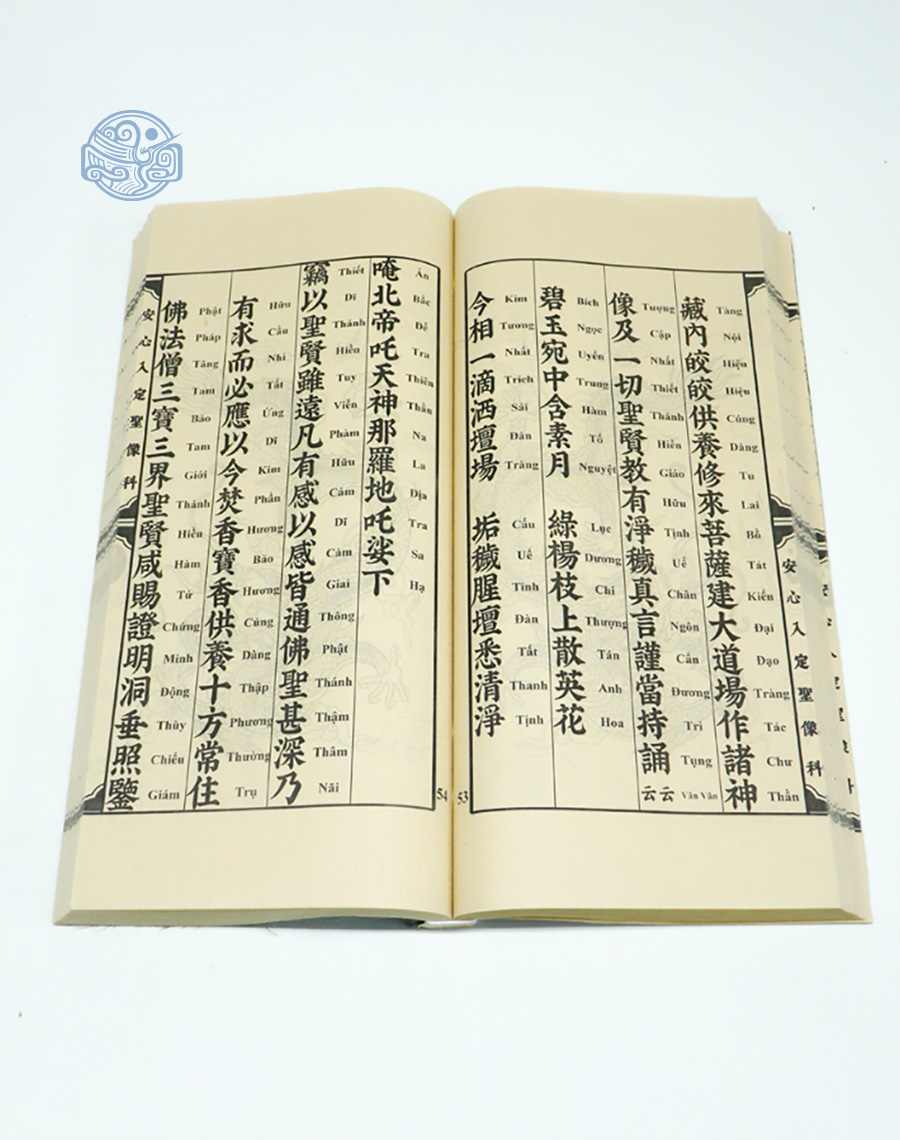 安心入定聖像科
藏內皎皎供養修來菩薩建大道場作諸神
Tàng Nội Hiệu Hiệu Cúng Dàng Tu Lai Bồ Tát Kiến Đại Đạo Tràng Tác Chư Thần
像及一切聖賢教有淨穢真言謹當持誦云云
Tượng Cập Nhất Thiết Thánh Hiền Giáo Hữu Tịnh Uế Chân Ngôn Cẩn Đương Trì Tụng Vân Vân
碧玉宛中含素月 綠楊枝上散英花
Bích Ngọc Uyển Trung Hàm Tố Nguyệt Lục Dương Chi Thượng Tán Anh Hoa
今相一滴洒壇場 垢穢腥壇悉清淨
Kim Tương Nhất Trích Sái Đàn Tràng Cấu Uế Tinh Đàn Tất Thanh Tịnh
53
54
唵北帝吒天神那羅地吒娑下
Án Bắc Đế Tra Thiên Thần Na La Địa Tra Sa Hạ
竊以聖賢雖遠凡有感以感皆通佛聖甚深乃
Thiết Dĩ Thánh Hiền Tuy Viễn Phàm Hữu Cảm Dĩ Cảm Giai Thông Phật Thánh Thậm Thâm Nãi
有求而必應以今焚香寶香供養十方常住
Hữu Cầu Nhi Tất Ứng Dĩ Kim Phần Hương Bảo Hương Cúng Dàng Thập Phương Thường Trụ
佛法僧三寶三界聖賢咸賜證明洞垂照鑒
Phật Pháp Tăng Tam Bảo Tam Giới Thánh Hiền Hàm Tứ Chứng Minh Động Thùy Chiếu Giám
安心入定聖像科